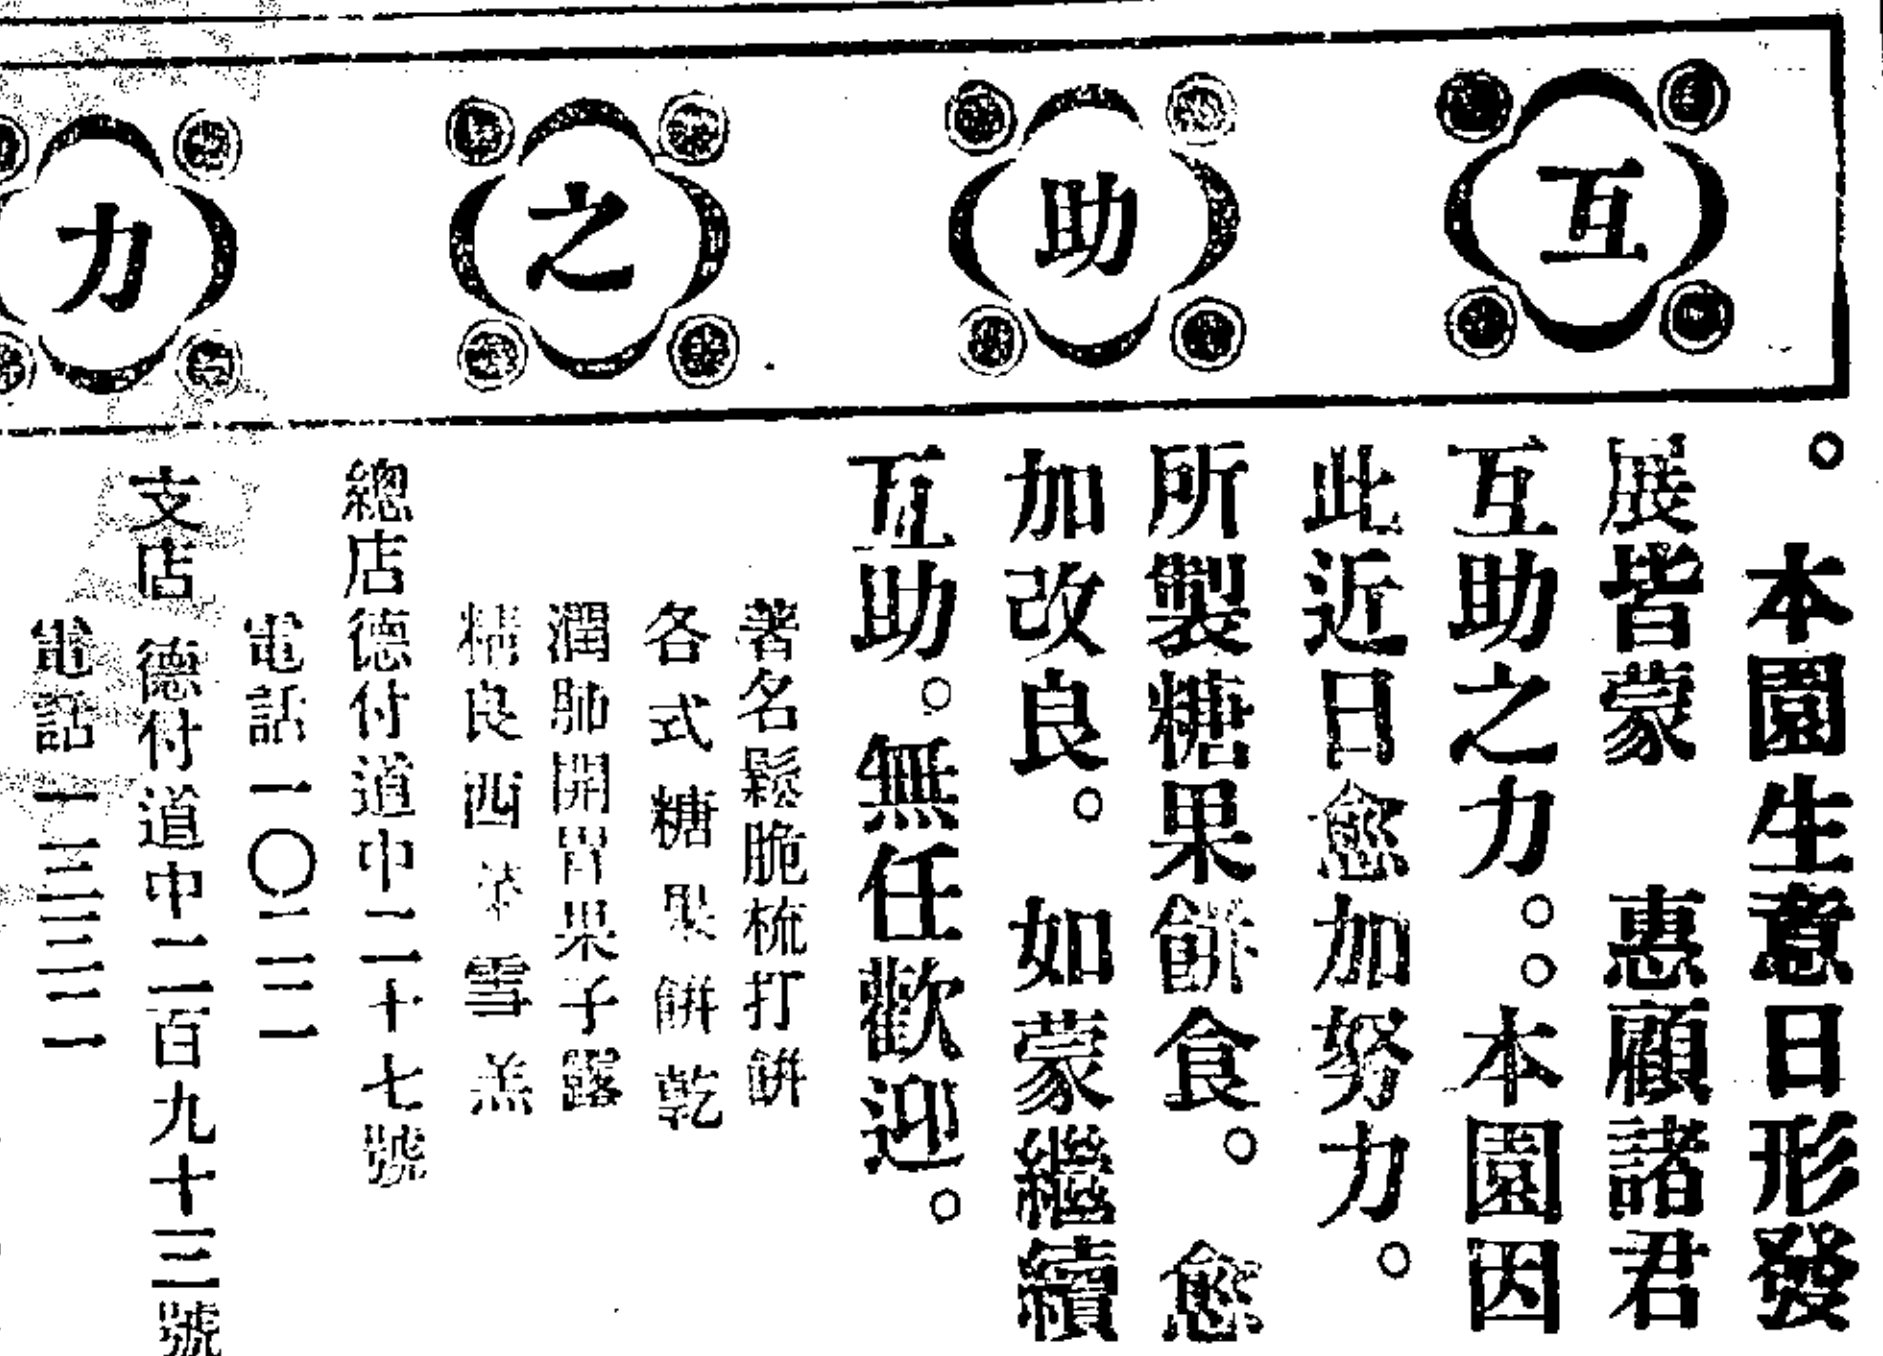 互助之力
。本園生意日形發
展皆蒙 惠顧諸君
互助之力。。本園因
此近日愈加努力。
所製糖果餅食。愈
加改良。如蒙繼續
互助。無任歡迎。
著名鬆脆梳打餅
各式糖果餅乾
潤肺開胃果子露
精良西菜雪羔
總店德付道中二十七號
電話一〇二二一
支店德付道中二百九十三號